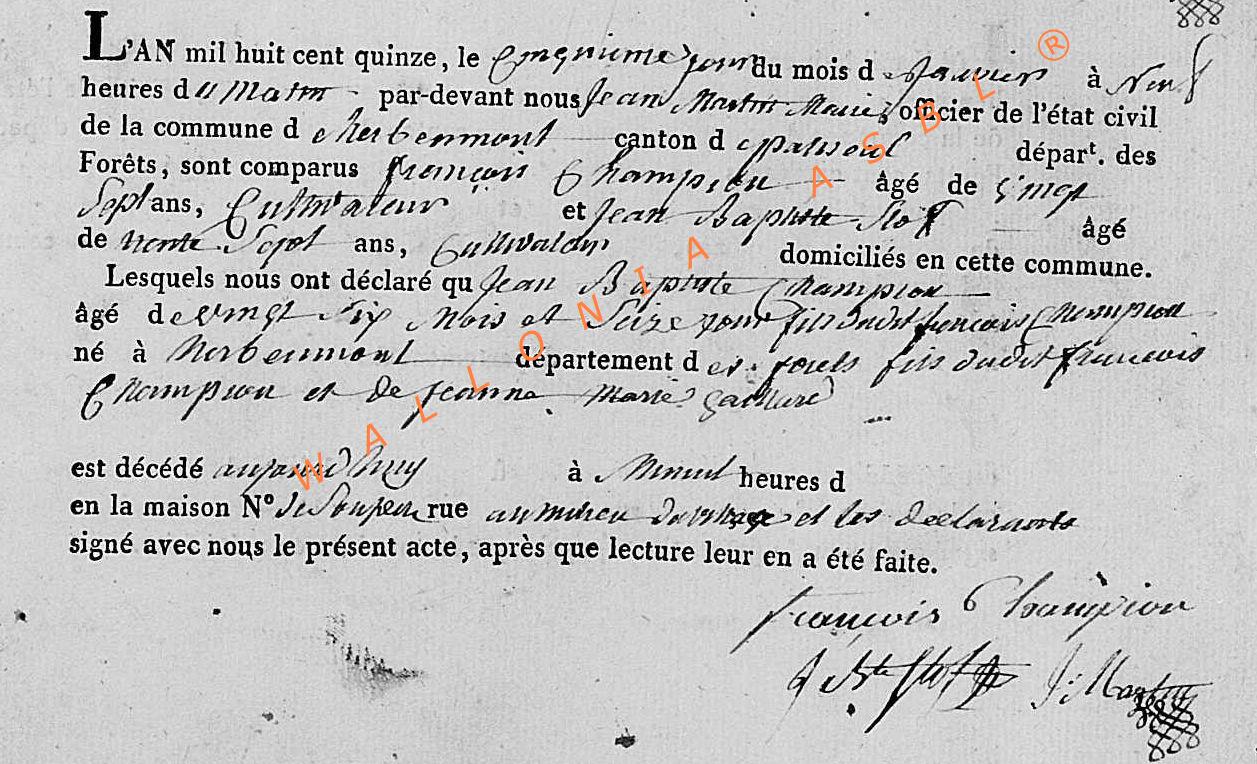 L'AN mil huit cent quinze, le Cinquieme jour du mois d e Janvier à Neuf
heures d u Matin par-devant nous Jean Martin Maire, officier de l'état civil
de la commune d e herbeumont canton d e paliseul départ. des
Forêts, sont comparus françois Champion âgé de vingt
Sept ans, Cultivateur et Jean Baptiste âgé
de trente Sept ans, Cultivateur domiciliés en cette commune.
Lesquels nous ont déclaré qu Jean Baptiste Champion
âgé de vingt Six Mois et Seize jour fils dudit francois Champion
né à herbeumont département d es forets fils dudit francois
Champion et de Jeanne Marie
est décédé aujourd huy à Minuit heures d
en la maison N° de rue au milieu du et les declarants
signé avec nous le présent acte, après que lecture leur en a été faite.
françois Champion
J: Martin
WALLONIA ASBL ®